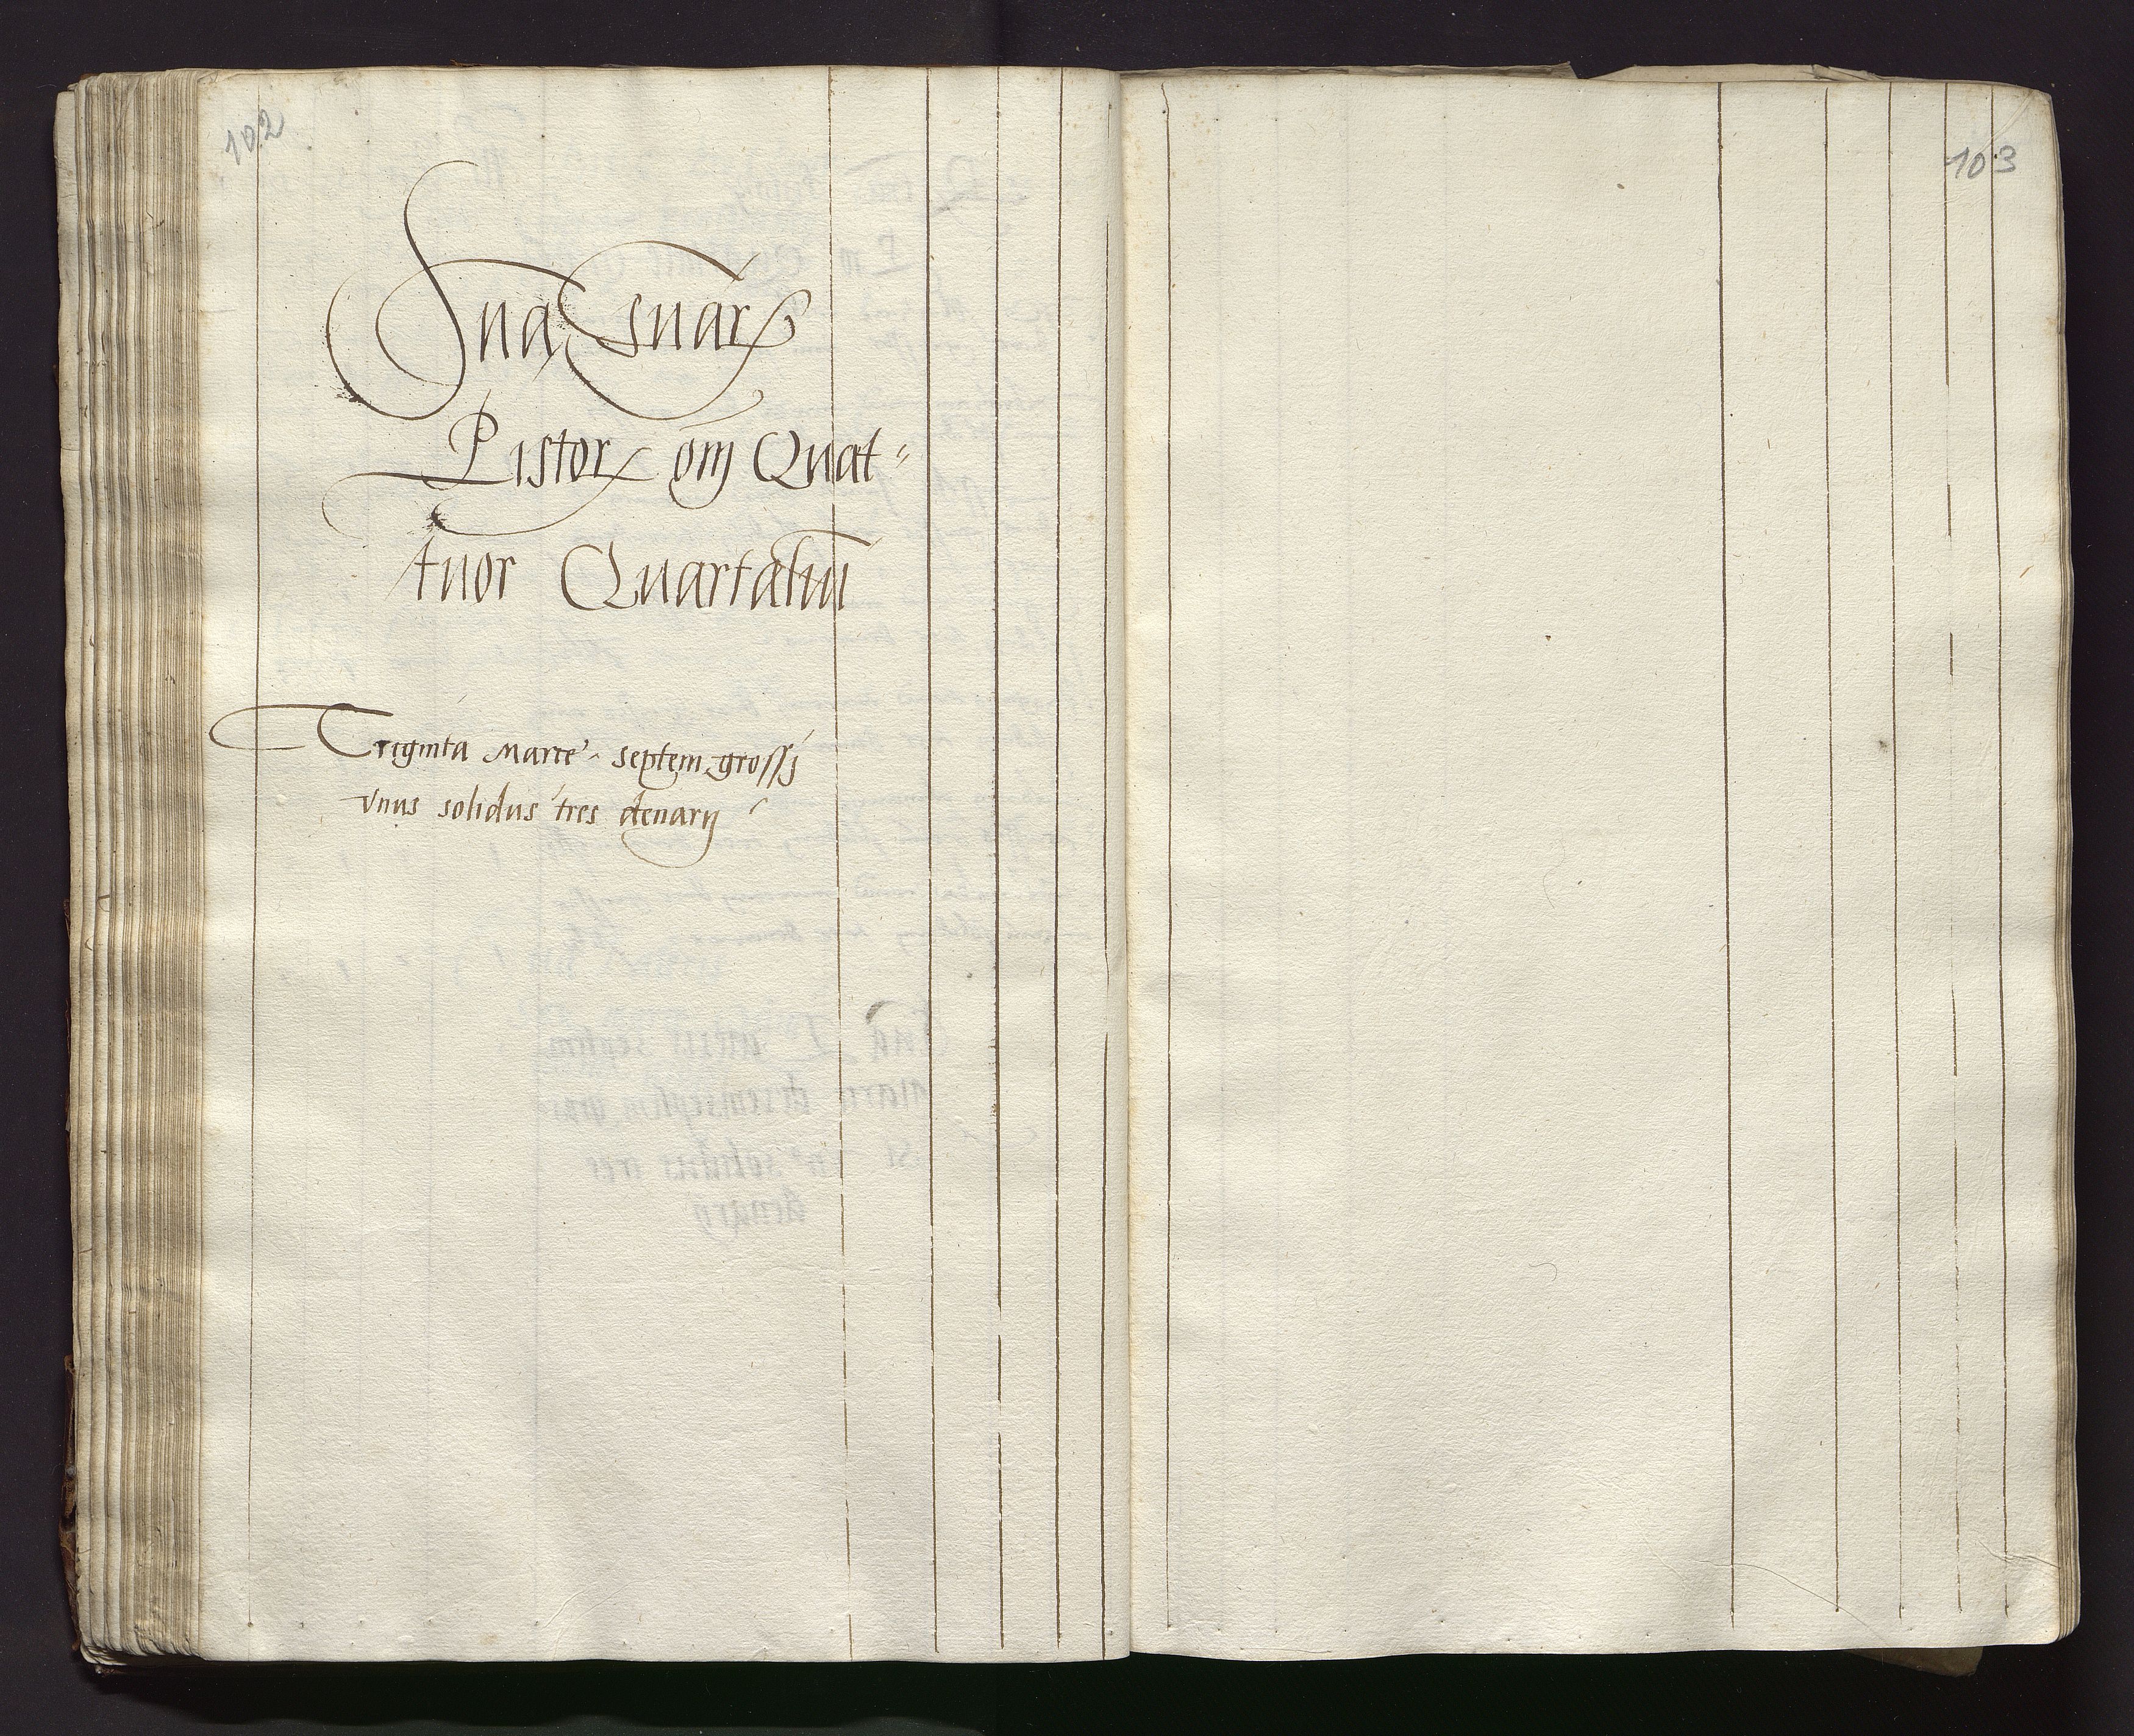 102
Sua Suar
Pistor om Quat=
tuor Quartaliu
Triginta Marce septem grossj
vnus solidus tres denarij
103